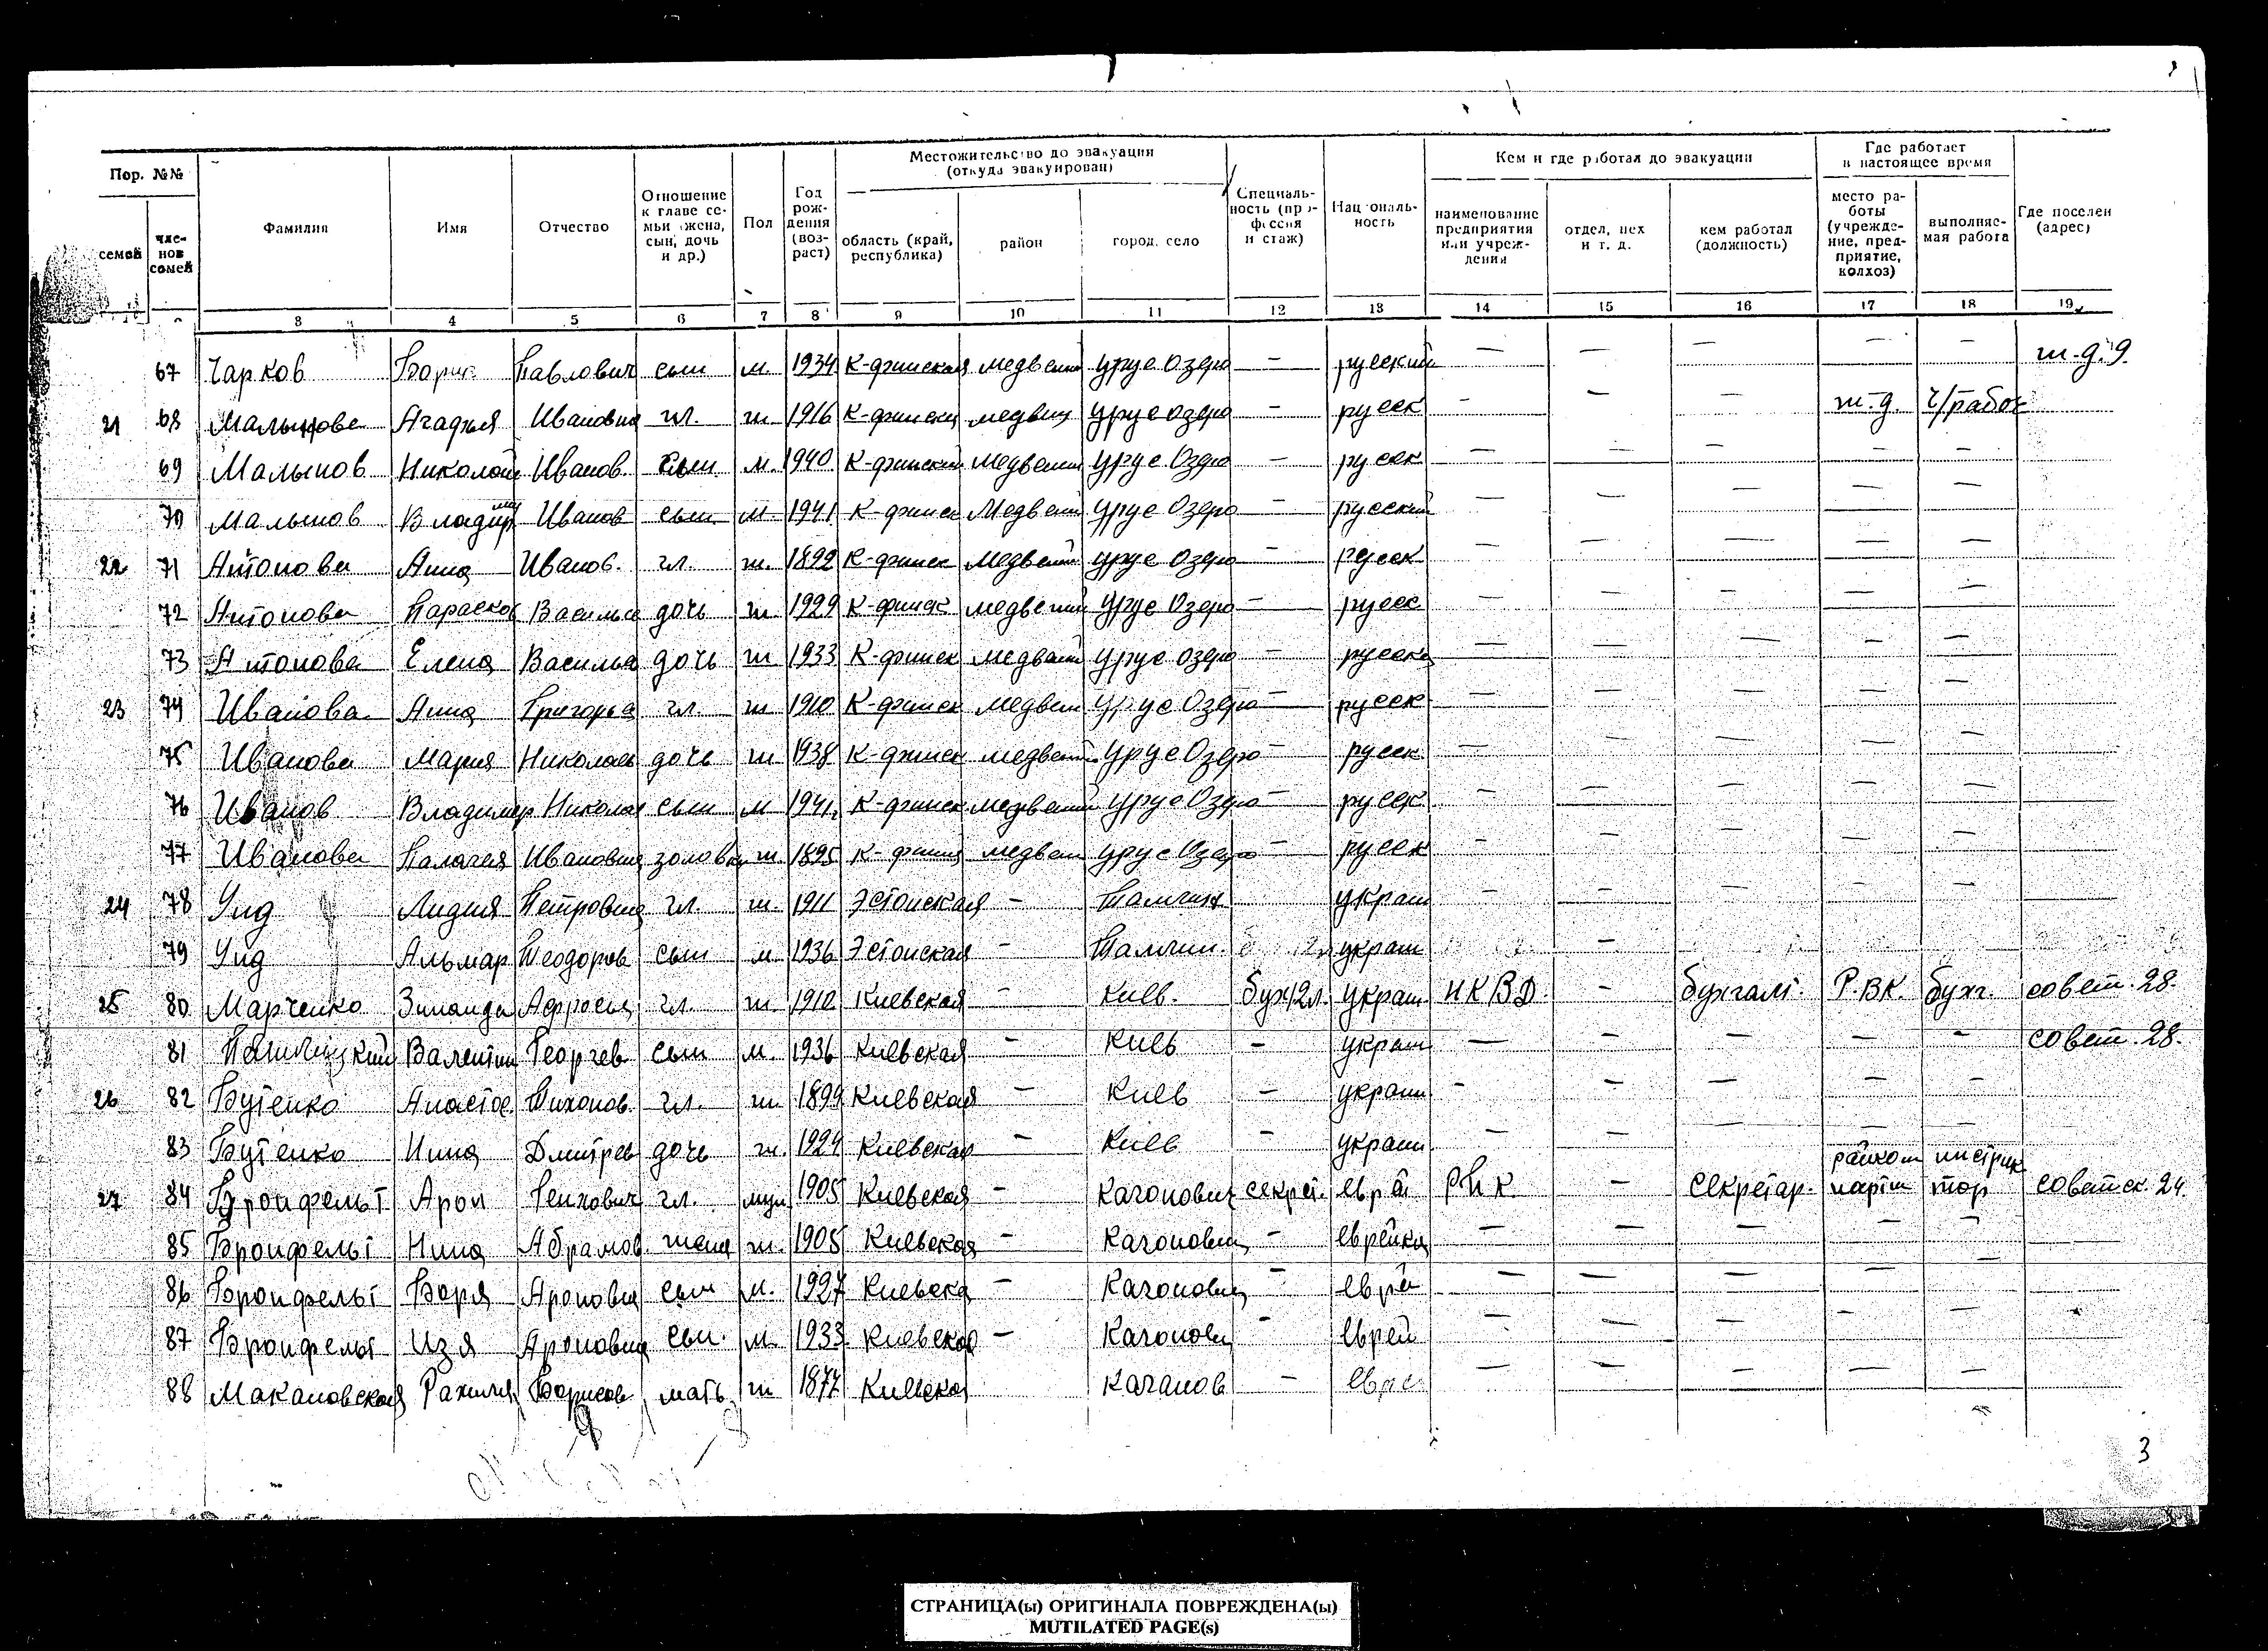 Пор. №№
Местожительство до эвакуации (откуда эвакуирован)
Кем и где работал до эвакуации
Где работает в настоящее время
семей
членов семей
Фамилия
Имя
Отчество
Отношение к главе семьи (жена, сын, дочь и др.)
Пол
Год рождения (возраст)
область (край, республика)
район
город, село
Специальность (профессия и стаж)
Национальность
наименование предприятия или учреждения
отдел, цех и т. д.
кем работал (должность)
место работы (учреждение, предприятие, колхоз)
выполняемая работа
Где поселен (адрес)
3 4 5 6 7 8 9 10 11 12 13 14 15 16 17 18 19
67 Чарков Борис Павлович сын м 1934 К-финская медвежий Урус Озеро — русский — — — — — ж.д. 9.
21 68 Малынова Агафия Ивановна гл. ж 1916 К-финск медвеж Урус озеро — русск — — — ж.д. ч/рабоч
69 Малынов Николай Иванов. сын м. 1940 К-финский Медвежий Урус Озеро — русск — — — — —
70 Малынов Владимир Иванов сын м 1941 К-финск Медвежий Урус Озеро — русский — — — — —
22 71 Антонова Анна Иванов. гл. ж. 1892 К-финск Медвежий Урус Озеро — русск — — — — —
72 Антонова Парасков Василье дочь ж 1929 К-финск медвежий Урус Озеро — русск — — — — —
73 Антонова Елена Василье дочь ж 1933 К-финск медвежий Урус озеро — русска — — — — —
23 74 Иванова Анна Григорье гл. ж 1910 К-финск медвеж Урус Озеро — русск — — — — —
75 Иванова Мария Николаев дочь ж 1938 К-финск медвежий Урус Озеро — русск — — — — —
76 Иванов Владимир Николае сын м 1941 К-финск медвежий Урус Озеро — русск — — — — —
77 Иванова Палагея Ивановна золовка ж 1895 К-финск медвеж Урус Озеро — русск — — — — —
24 78 Унд Лидия Петровна гл. ж. 1911 Эстонская — Таллин украин — — — — —
79 Унд Альмар Теодоров сын м 1936 Эстонская — Таллин украин —
25 80 Марченко Зинаида Афросье гл. ж. 1910 Киевская — Киев. бух 12л. украин НКВД — бухгалт. Р.В.К. бухг. совет. 28.
81 Валентин Георгев сын м. 1936 Киевская — Киев — украин — — — — — совет. 28.
26 82 Бутенко Анастас Тихонов. гл. ж. 1899 Киевская — Киев — украин — — — — —
83 Бутенко Нина Дмитрев дочь ж. 1924 Киевская — Киев — украин. — — — — —
27 84 Бронфельт Арон гл. муж 1905 Киевская — Каганович секрет. еврей РИК — секретар. райком парти инструктор советск. 24.
85 Бронфельт Нина Абрамов. жена ж. 1905 Киевская — Каганович — еврейка — — — — —
86 Бронфельт Боря Аронович сын м. 1927 Киевска — Каганович — еврей — — — — —
87 Бронфельт Изя Аронович сын. м. 1933 Киевская — Каганови — еврей — — — — —
88 Макановская Рахиля Борисов мать ж 1877 Киевская Каганов — евре — — — — —
3
СТРАНИЦА(ы) ОРИГИНАЛА ПОВРЕЖДЕНА(ы)
MUTILATED PAGE(s)